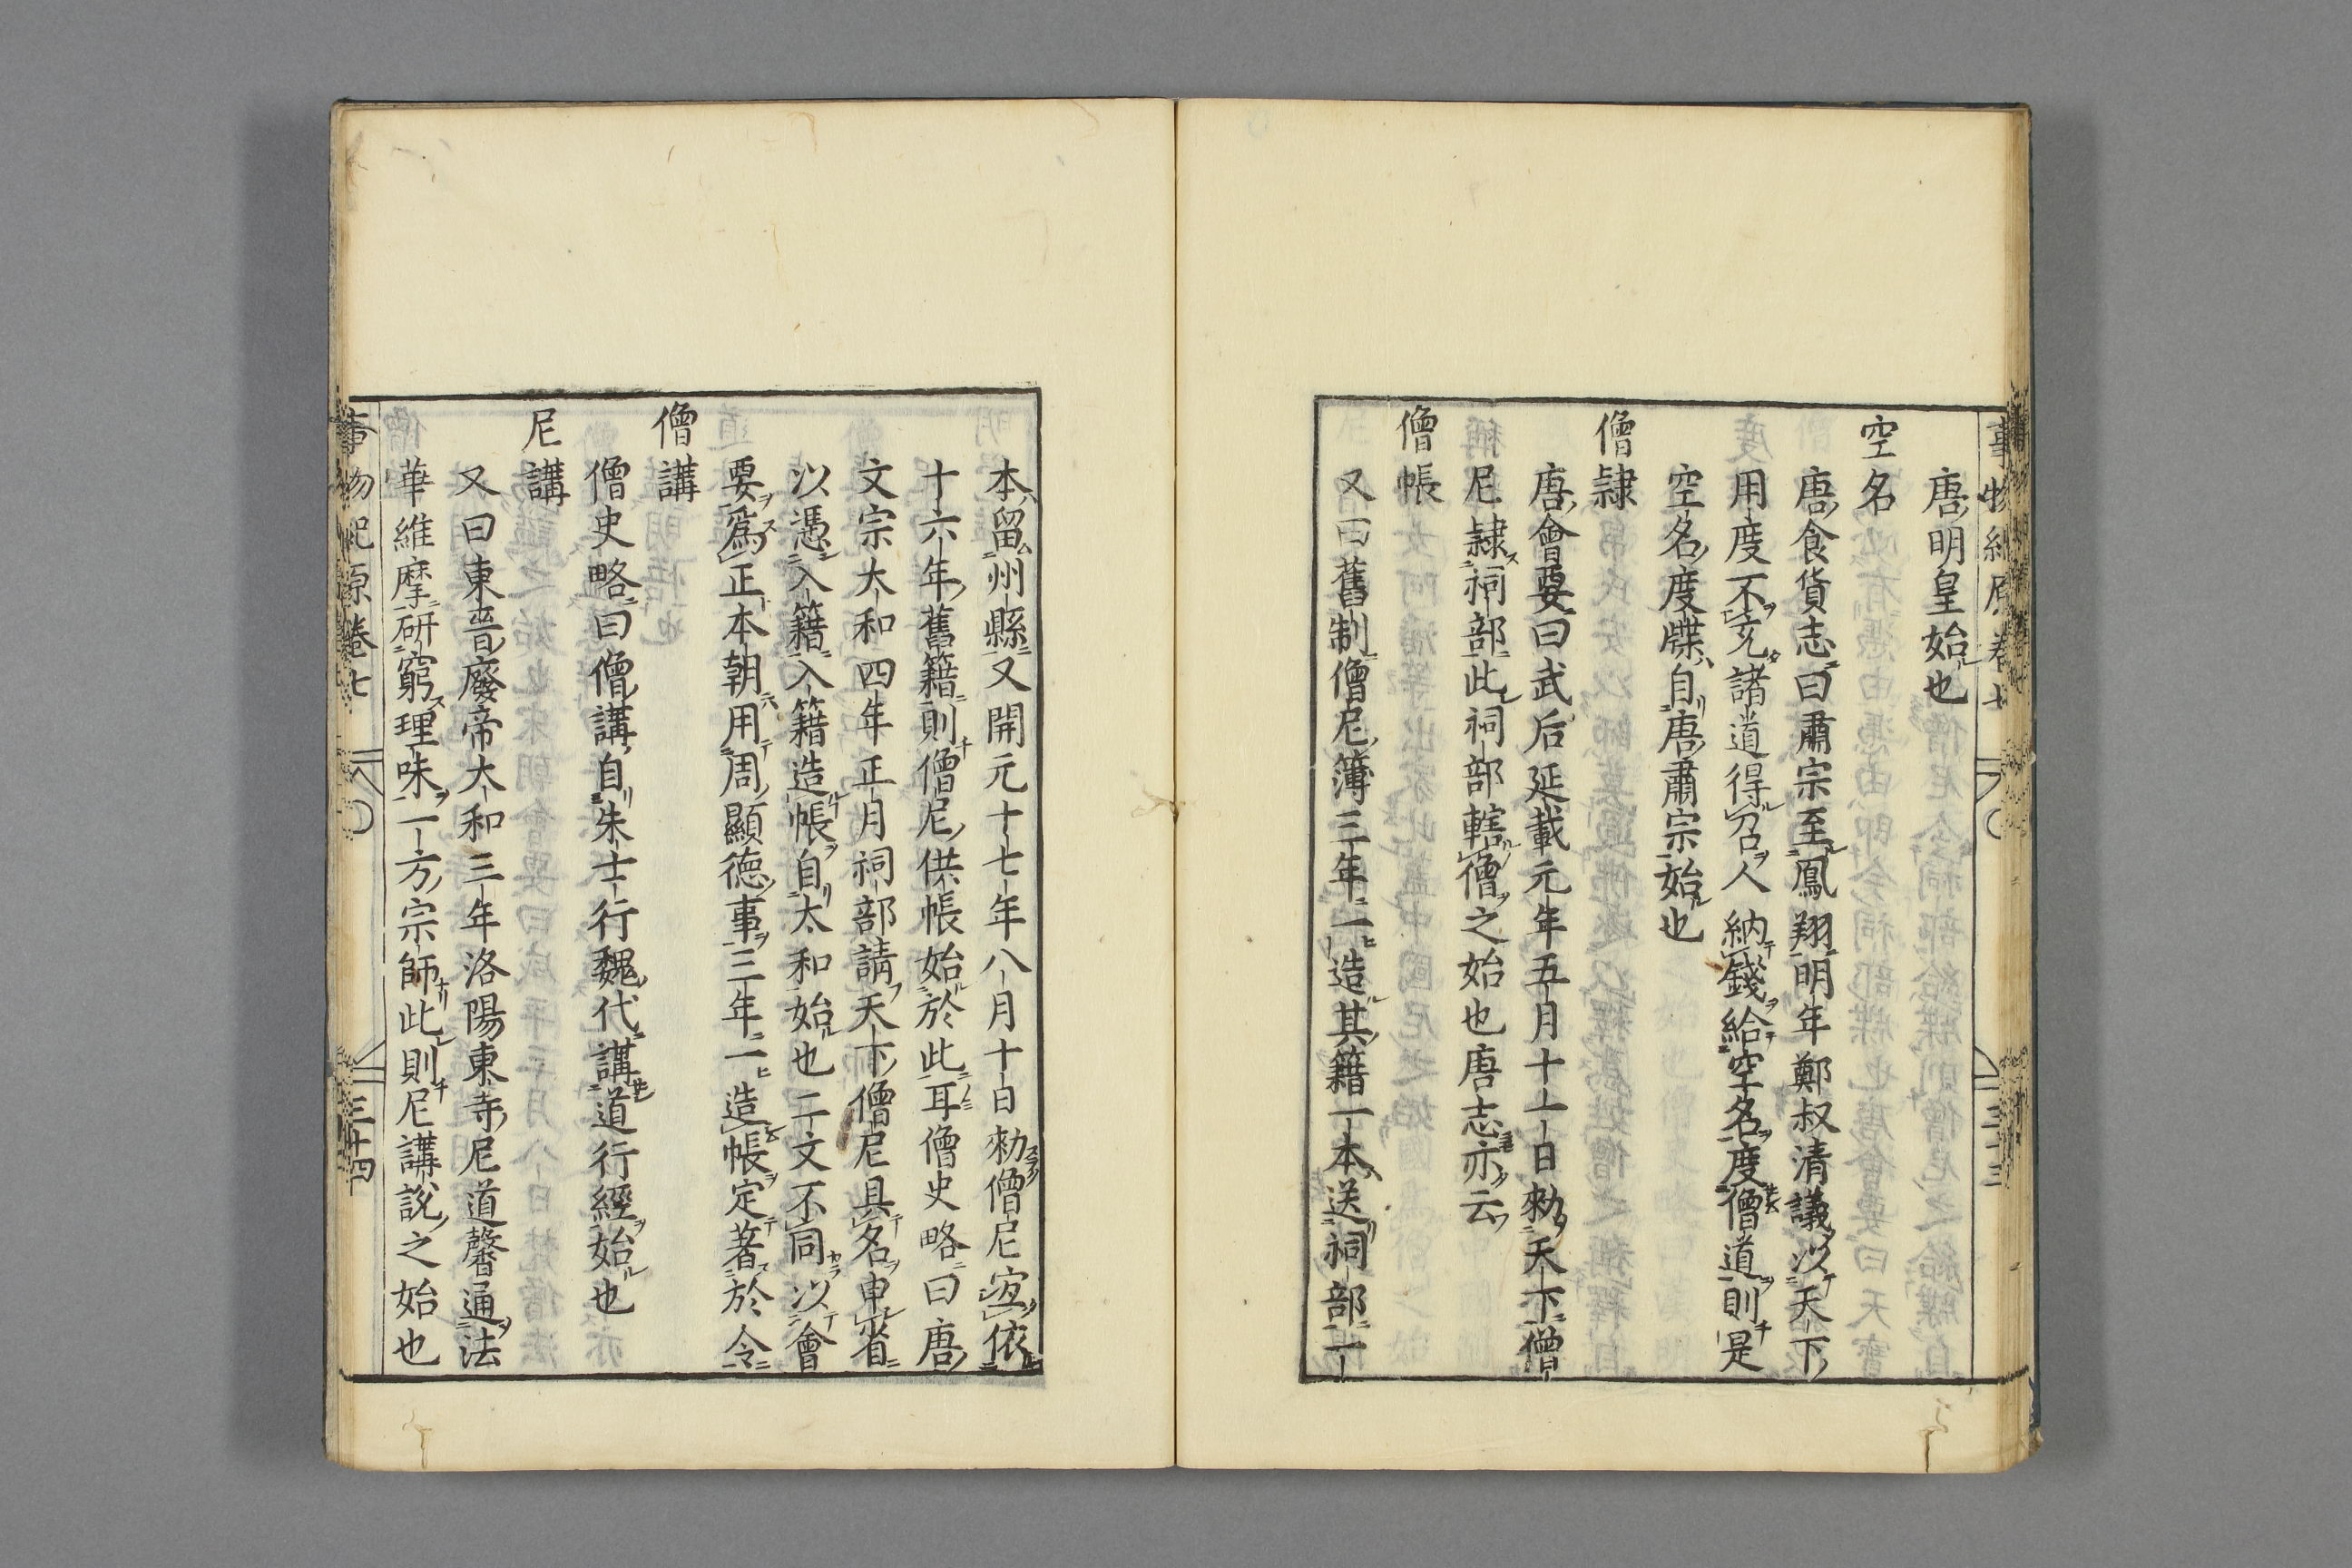 唐明皇始也
空名
唐食貨志曰肅宗至鳳翔明年鄭叔清議以天下
用度不充諸道得召人納錢給空名度僧道則是
空名度牒自唐肅宗始也
僧隷
唐會要曰武后延載元年五月十一日勑天下僧
尼隷祠部此祠部轄僧之始也唐志亦云
僧帳
又曰舊制僧尼簿三年一造其籍一本送祠部一
本留州縣又開元十七年八月十日勑僧尼宜依
十六年舊籍則僧尼供帳始於此耳僧史略曰唐
文宗大和四年正月祠部請天下僧尼具名申省
以憑入籍入籍造帳自太和始也二文不同以會
要爲正本朝用周顯德事三年一造帳定著於令
僧講
僧史略曰僧講自朱士行魏代講道行經始也
尼講
又曰東晉廢帝大和三年洛陽東寺尼道馨通法
華維摩研窮理味一方宗師此則尼講說之始也
事物紀原卷七
三十四